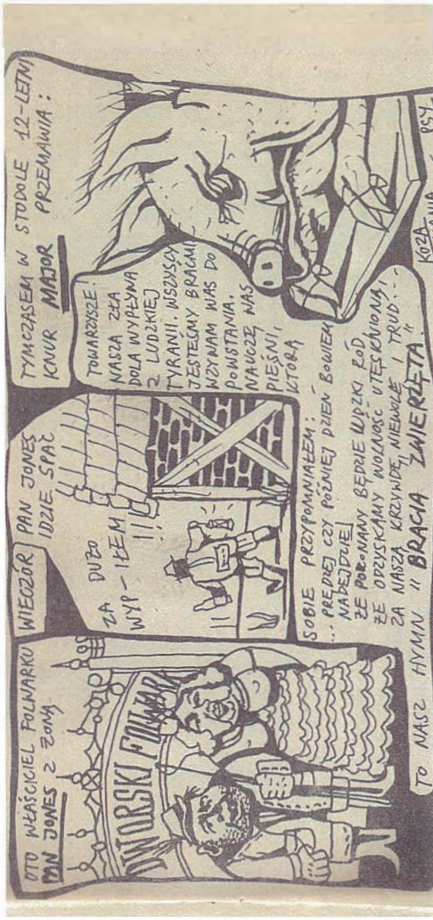 OTO WŁAŚCICIEL FOLWARKU
PAN JONES Z ŻONĄ
DWORSKI FOLWAR
WIECZÓR PAN JONES
IDZIE SPAĆ
ZA DUŻO
WYP-IŁEM
!!!
TYMCZASEM W STODOLE 12-LETNI
KNUR MAJOR PRZEMAWIA:
TOWARZYSZE!
NASZA ZŁA
DOLA WYPŁYNA
Z LUDZKIEJ
TYRANII. WSZYSCY
JESTEŚMY BRAĆMI
WZYNAM WAS DO
POWSTANIA.
NAUCZĘ NAS
PIEŚNI,
KTÓRĄ
SOBIE PRZYPOMNAŁEM: -
... PRĘDZEJ CZY PÓŹNIEJ DZIEŃ BOWIEM
NADEJDZIE
ŻE POKONANY BĘDZIE LUDZKI RÓD,
ŻE ODZYSKAMY WOLNOŚĆ UTĘSKNIONĄ,
ZA NASZĄ KRZYWDĘ, NIEWOLĘ I TRUD...-
TO NASZ HYMN "BRACIA ZWIERZĘTA"
KOZA PSY